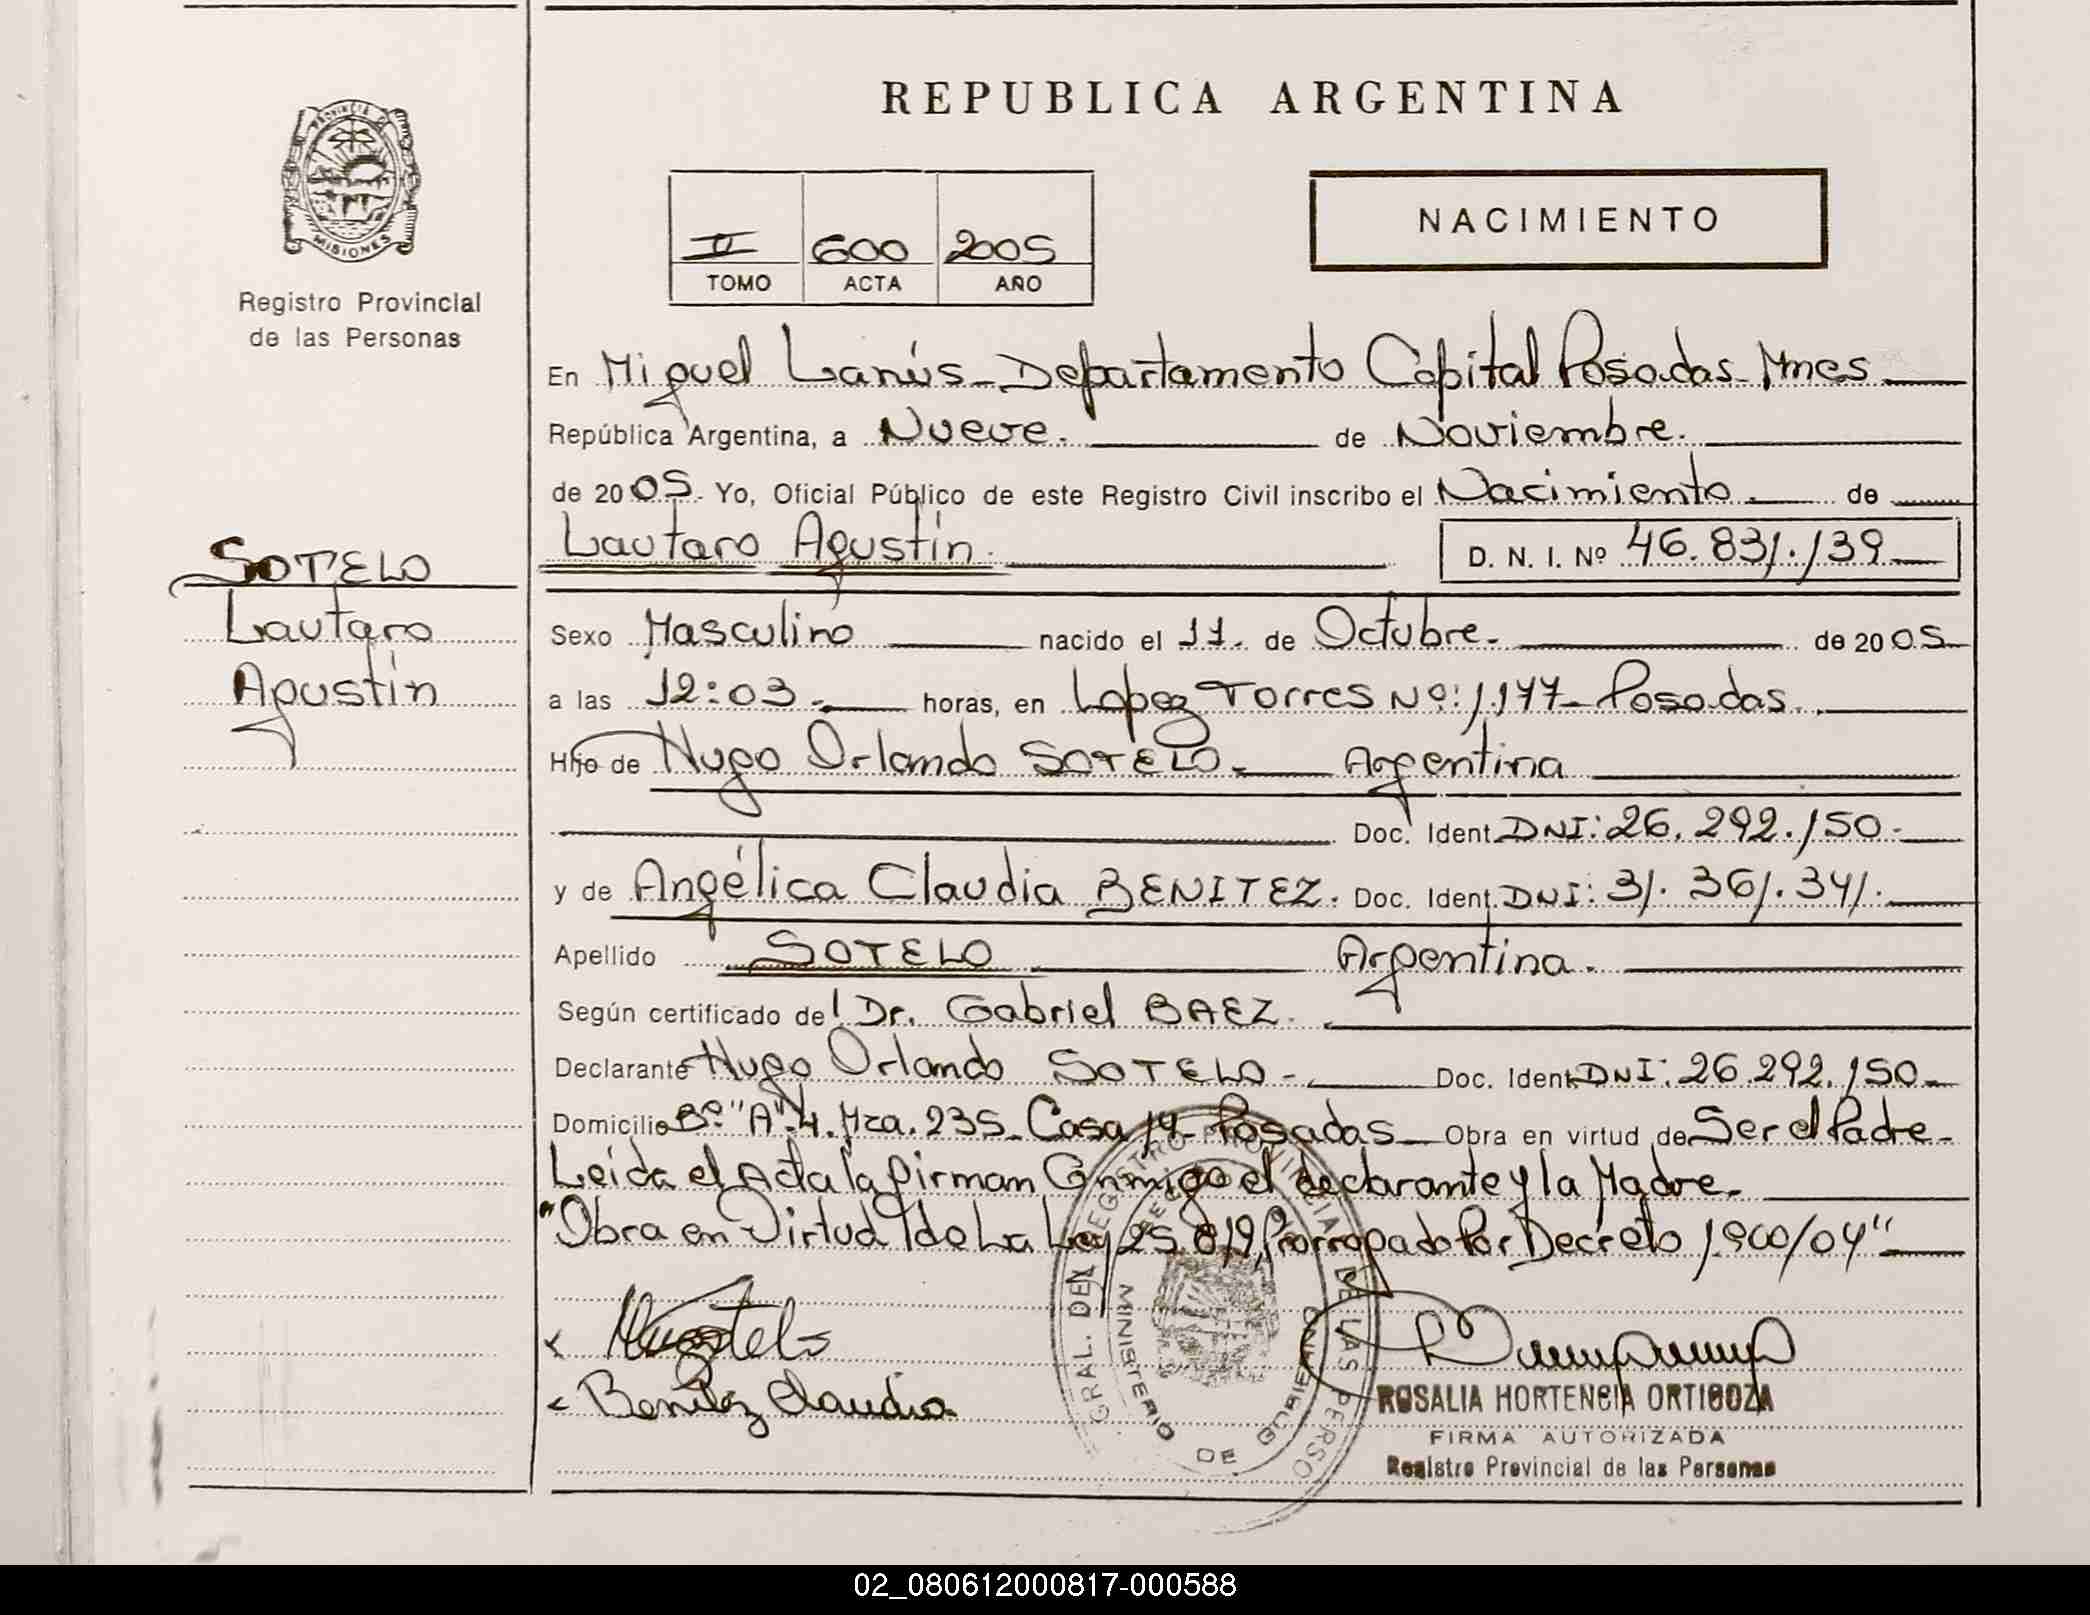 REPUBLICA ARGENTINA
PROVINCIA DE MISIONES
Registro Provincial
de las Personas
II 600 2005
TOMO ACTA AÑO
NACIMIENTO
En Miguel Lanús - Departamento Capital Posadas - Mnes
República Argentina, a Nueve. de Noviembre.
de 2005. Yo, Oficial Público de este Registro Civil inscribo el Nacimiento. de
Lautaro Agustín. D. N. I. Nº 46.831.139
SOTELO
Lautaro
Agustín
Sexo Masculino nacido el 11. de Octubre. de 2005
a las 12:03. horas, en Lopez Torres Nº: 1.177 - Posadas.
Hijo de Hugo Orlando SOTELO. Argentina
Doc. Ident. DNI: 26.292.150.
y de Angélica Claudia BENITEZ. Doc. Ident. DNI: 31.361.341.
Apellido SOTELO Argentina.
Según certificado de Dr. Gabriel BAEZ.
Declarante Hugo Orlando SOTELO - Doc. Ident. DNI: 26.292.150
Domicilio Bº "A" 4. Mza. 235. Casa 14 - Posadas Obra en virtud de Ser el Padre.
Leida el Acta la firman Conmigo el declarante y la Madre.
"Obra en Virtud de La Ley 25.819, Prorrogado Por Decreto 1.900/04"
Benitez Claudia
GRAL. DEL REGISTRO PROVINCIAL DE LAS PERSO
MINISTERIO DE GOBIERNO
ROSALIA HORTENCIA ORTIGOZA
FIRMA AUTORIZADA
Registro Provincial de las Personas
02_080612000817-000588